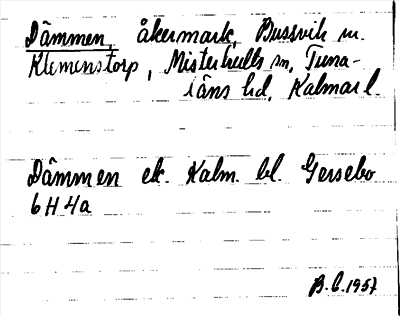 Dämmen, åkermark, Bussvik m.
Klemenstorp, Misterhults sn, Tuna-
läns hd, Kalmar l.
Dämmen ek. Kalm. bl. Gersebo
6H4a
B.C. 1957